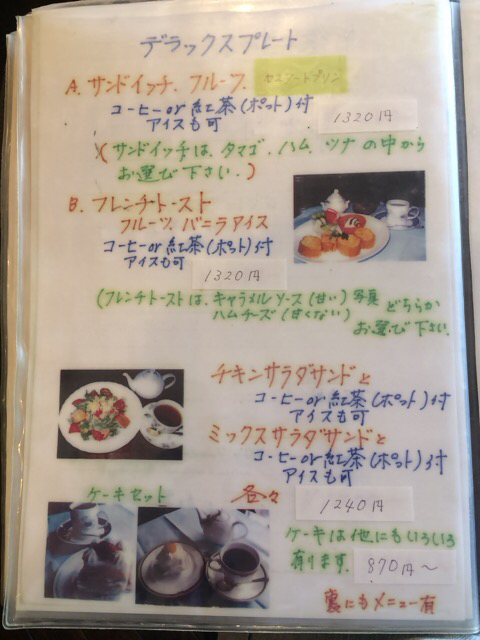 デラックスプレート
A. サンドイッチ、フルーツ、カスタードプリン
コーヒー or 紅茶 (ポット) 付
アイスも可
1320円
(サンドイッチは、タマゴ、ハム、ツナの中から
お選び下さい。)
B. フレンチトースト
フルーツ、バニラアイス
コーヒー or 紅茶 (ポット) 付
アイスも可
1320円
(フレンチトーストは、キャラメルソース (甘い) 写真
ハムチーズ (甘くない)
どちらか
お選び下さい.
チキンサラダサンドと
コーヒー or 紅茶 (ポット) 付
アイスも可
ミックスサラダサンドと
コーヒー or 紅茶 (ポット) 付
アイスも可
ケーキセット
各々
1240円
ケーキは他にもいろいろ
有ります.
870円～
裏にもメニュー有